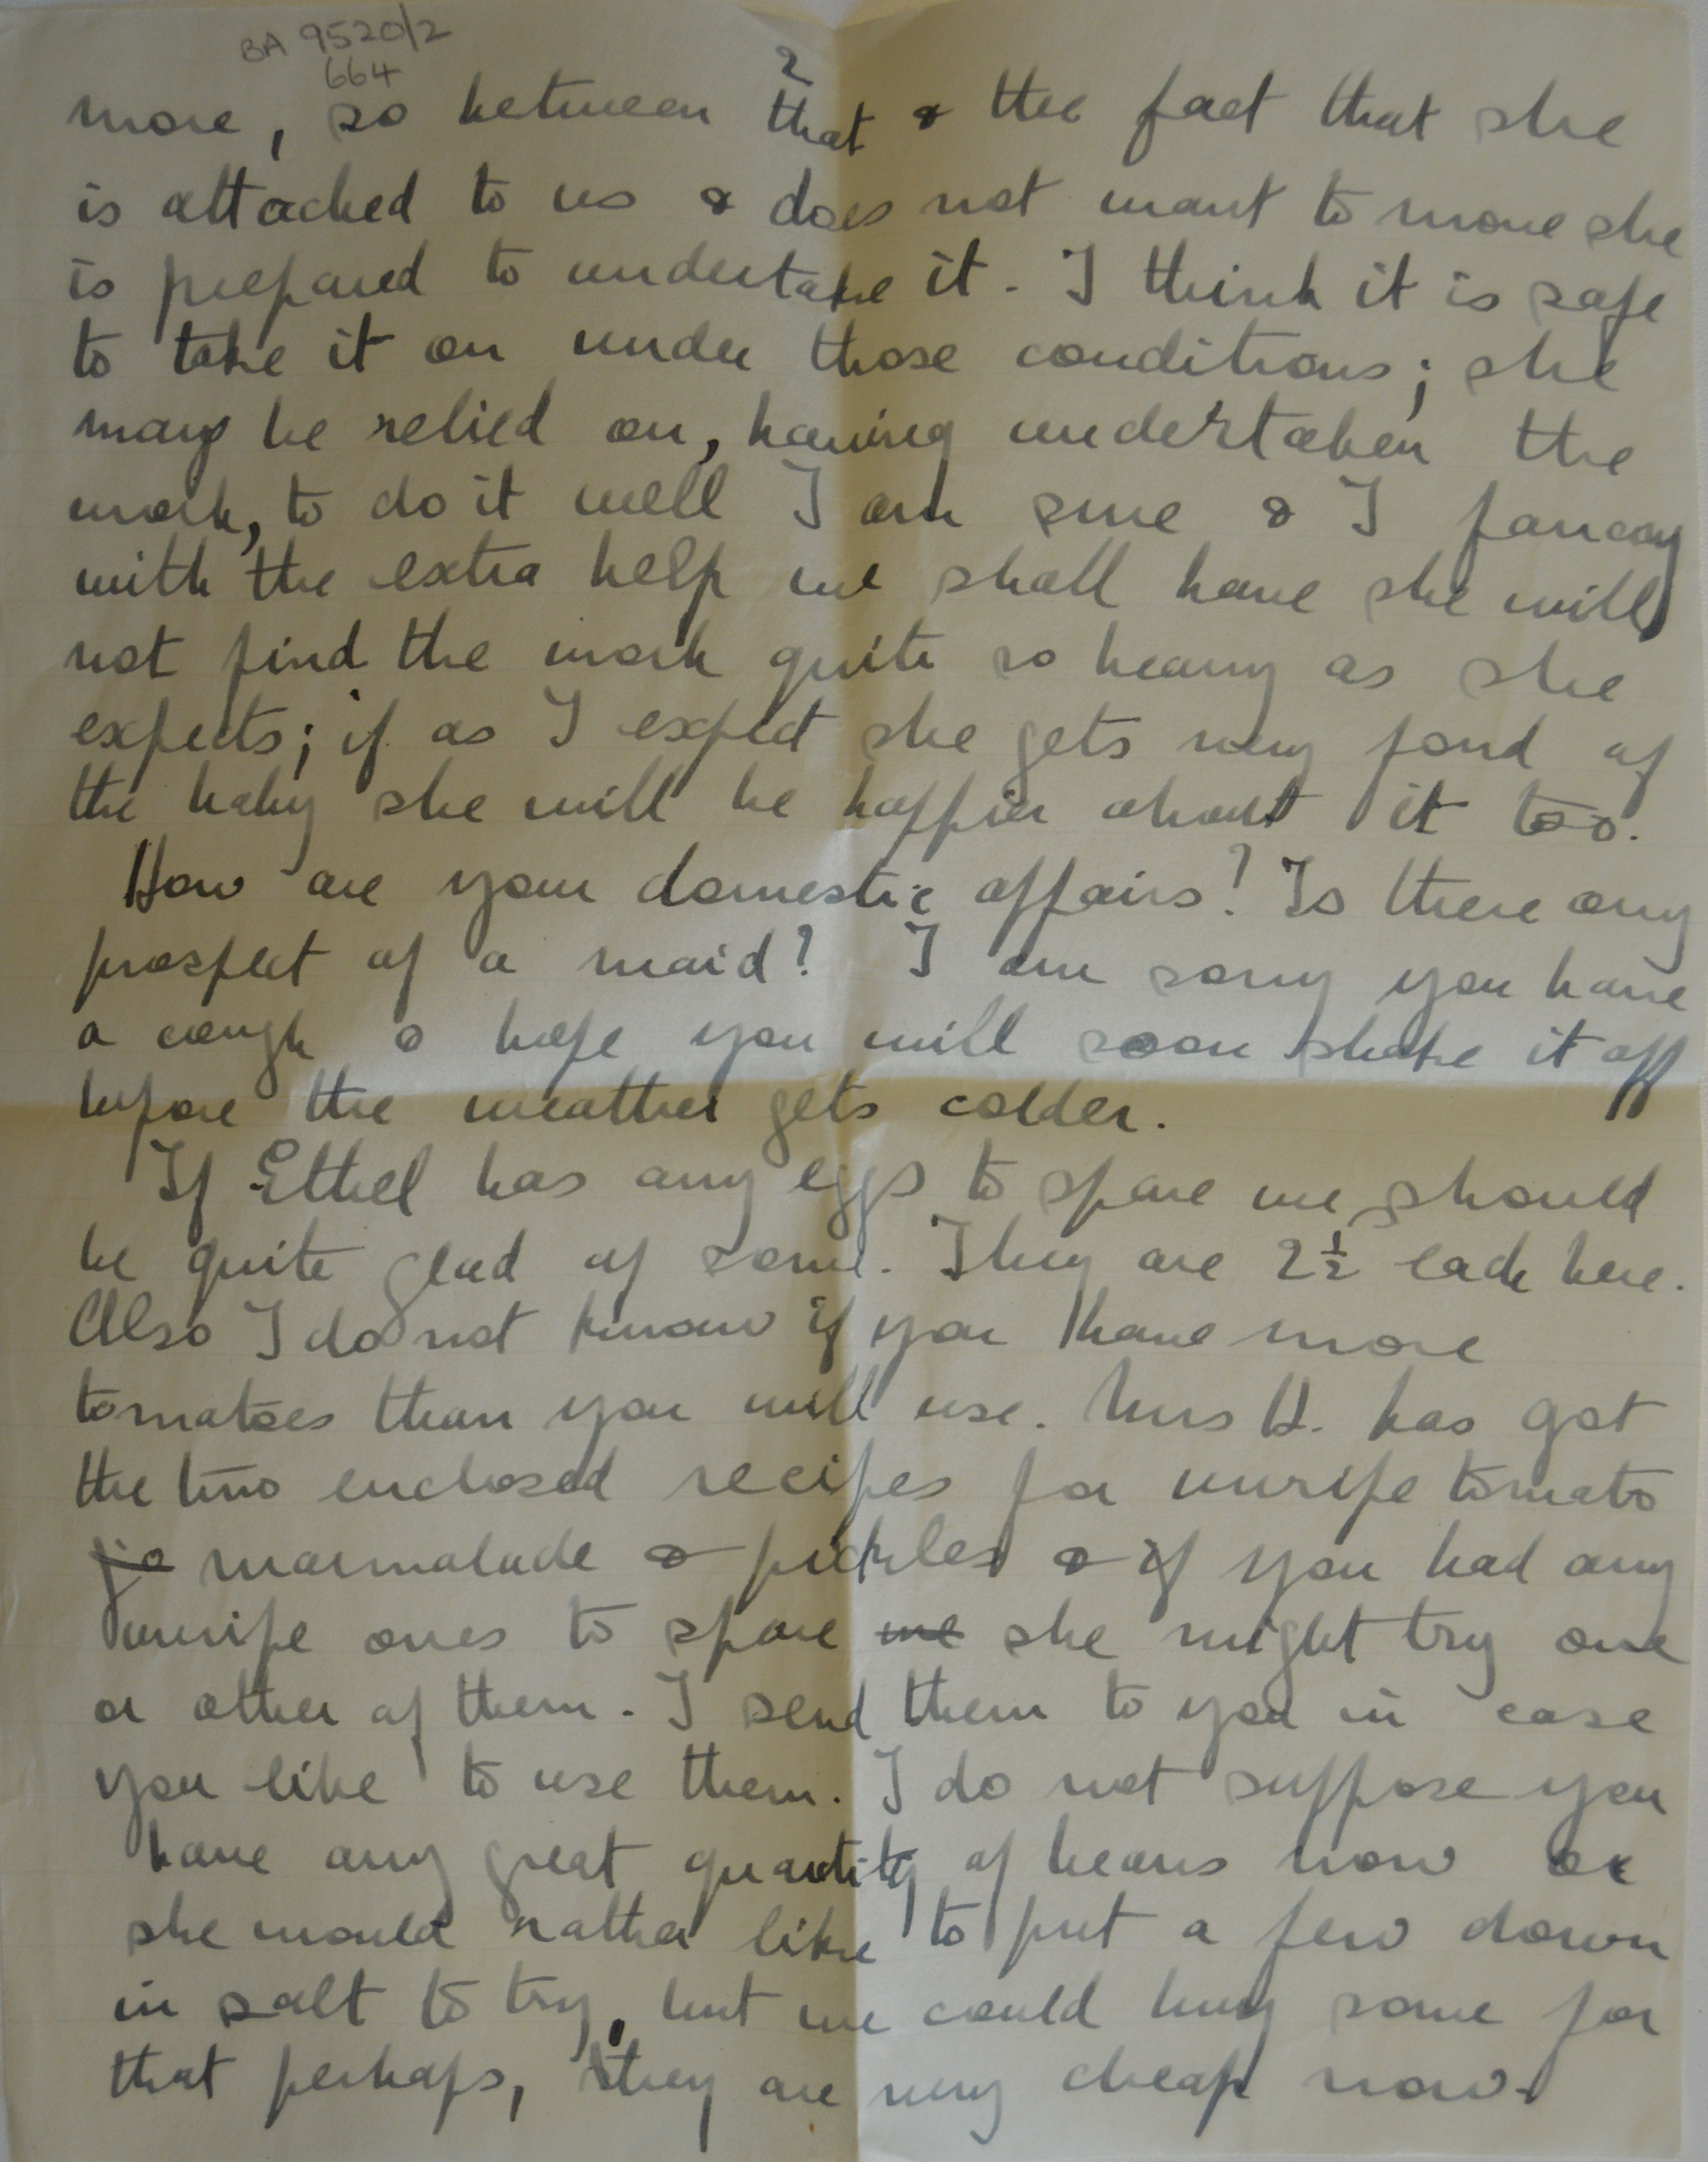 BA 9520/2
664
2
more, so between that & the fact that she
is attached to us & does not want to move she
is prepared to undertake it. I think it is safe
to take it on under those conditions; she
may be relied on, having undertaken the
work, to do it well I am sure & I fancy
with the extra help we shall have she will
not find the work quite so heavy as she
expects; if as I expect she gets very fond of
the baby she will be happier about it too.
How are your domestic affairs? Is there any
prospect of a maid? I am sorry you have
a cough & hope you will soon shake it off
before the weather gets colder.
If Ethel has any eggs to spare we should
be quite glad of some. They are 2½ each here.
Also I do not know if you have more
tomatoes than you will use. Mrs H. has got
the two enclosed recipes for unripe tomato
ja marmalade & pickles & if you had any
unripe ones to spare we she might try one
or other of them. I send them to you in case
you like to use them. I do not suppose you
have any great quantity of beans now or
she would rather like to put a few down
in salt to try, but we could buy some for
that perhaps, they are very cheap now.